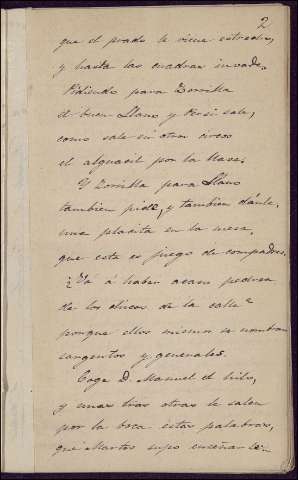 2
que el prado le viene estrecho,
y hasta las cuadras invade.
Pidiendo para Zorrilla
el buen Llano y Persi sale,
como sale en otros circos
el alguacil por la llave.
Y Zorrilla para Llano
tambien pide, y tambien dánle,
una placita en la mesa,
que esta es juego de compadres.
¿Vá á haber acaso pedrea
de los chicos de la calle?
porque ellos mismos se nombran
sargentos y generales.
Coge D. Manuel el hilo,
y unas tras otras le salen
por la boca estas palabras,
que Martos supo enseñarle: